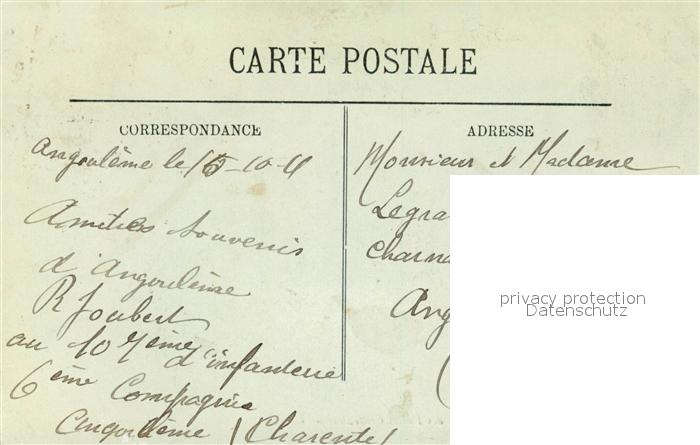 CARTE POSTALE
CORRESPONDANCE
ADRESSE
Angoulême le 15-10-11
Amitiés Souvenirs
d'Angoulême
R Joubert
au 107ème d'infanterie
6ème Compagnie
Angoulême (Charente)
Monsieur et Madame
Legra
Charn
Ang
privacy protection
Datenschutz